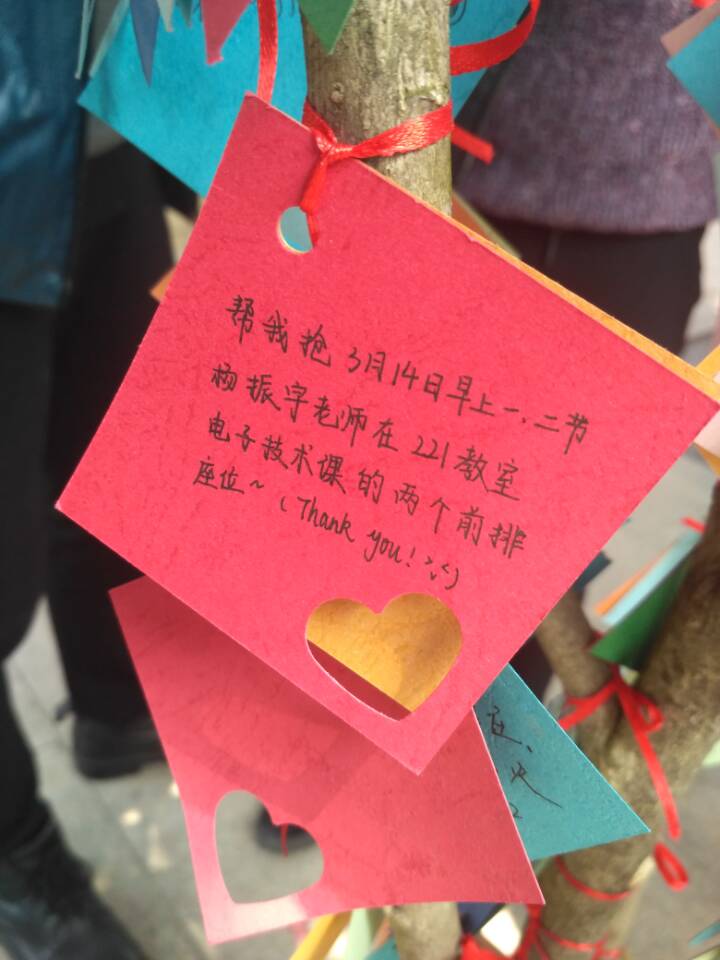 帮我抢 3月14日早上一、二节
杨振宇老师在221教室
电子技术课的两个前排
座位~ (Thank you! >.<)